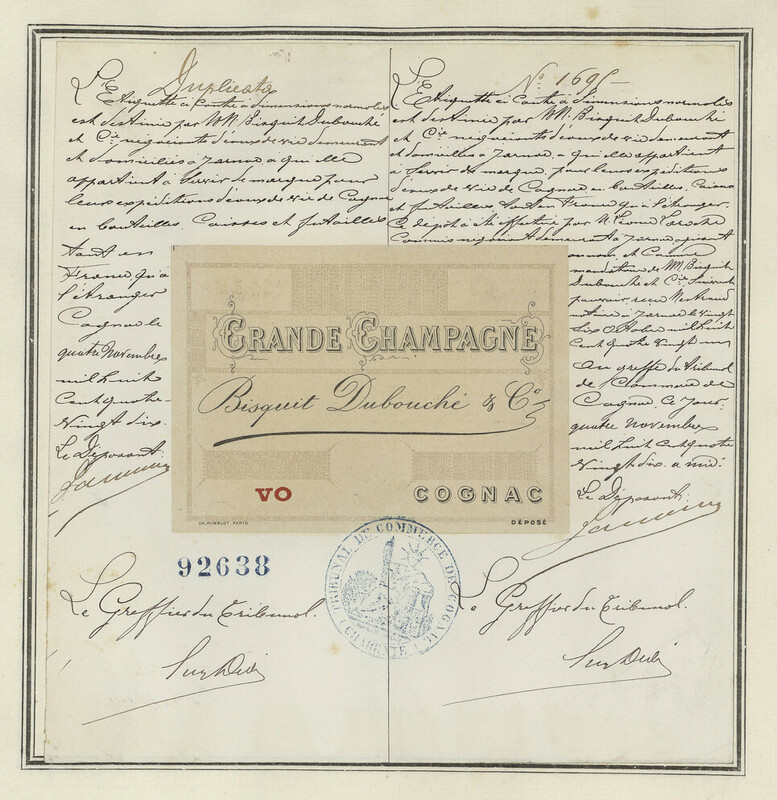 Duplicata
L'Etiquette ci Contre à dimensions normales
est destinée par MM. Bisquit Dubouché
et Cie négociants d'eaux de vie demeurant
et domiciliés à Jarnac à qui elle
appartient à servir de marque pour
leurs expéditions d'eaux de vie de Cognac
en bouteilles Caisses et futailles
tant en
France qu'à
l'étranger
Cognac le
quatre Novembre
mil huit
cent quatre
Vingt six.
Le Déposant:
No 1695
L'Etiquette ci Contre à dimensions normales
est destinée par MM. Bisquit Dubouché
et Cie négociants d'eaux de vie demeurant
et domiciliés à Jarnac à qui elle appartient
à servir de marque pour leurs expéditions
d'eaux de vie de Cognac en bouteilles, Caisses
et futailles tant en France qu'à l'étranger.
Ce dépôt a été effectué par M. Laroche
Commis négociant demeurant à Jarnac agissant
comme
mandataire de MM. Bisquit
Dubouché et Cie suivant
pouvoir reçu
notaire à Jarnac le vingt
six Octobre mil huit
cent quatre vingt un
au greffe du tribunal
de Commerce de
Cognac, ce jour
quatre novembre
mil huit cent quatre
Vingt six. à midi.
Le Déposant:
GRANDE CHAMPAGNE
Bisquit Dubouché & Co
VO
COGNAC
CH. HUMBLOT PARIS
DÉPOSÉ
92638
TRIBUNAL DE COMMERCE DE COGNAC
(CHARENTE)
Le Greffier du Tribunal.
Le Greffier du Tribunal.